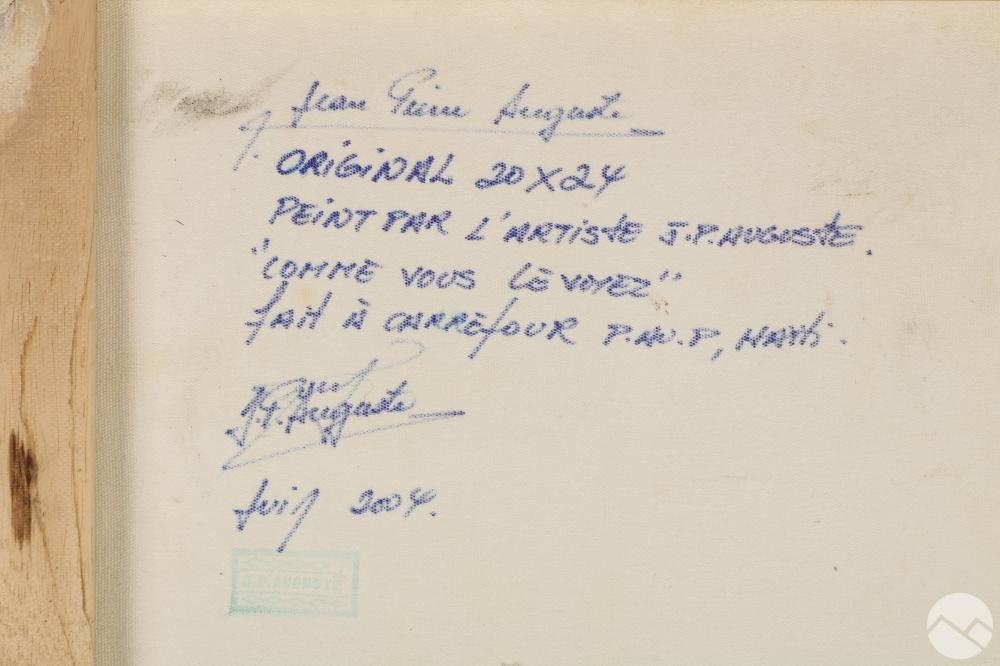 Jean Pierre Auguste
ORIGINAL 20X24
PEINT PAR L'ARTISTE J.P. AUGUSTE.
"COMME VOUS LE VOYEZ"
fait à CARREfOUR P.AU.P, HAITI.
J.P. Auguste
Juin 2004.